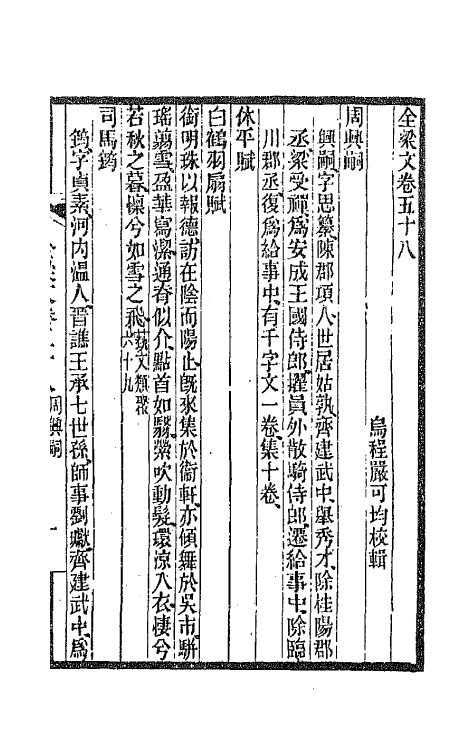 全梁文卷五十八
烏程嚴可均校輯
周興嗣
興嗣字思纂陳郡項人世居姑孰齊建武中舉秀才除桂陽郡
丞梁受禪爲安成王國侍郎擢員外散騎侍郎遷給事中除臨
川郡丞復爲給事中有千字文一卷集十卷
休平賦
白鶴羽扇賦
銜明珠以報德訪在陰而陽止旣來集於衞軒亦傾舞於吳市駢
瑤翦雪盈華寫潔通脊似介點首如驖縈吹動髮環涼入衣棲兮
若秋之暮懍兮如雪之飛藝文類聚六十九
司馬筠
筠字貞素河內溫人晉譙王承七世孫師事劉瓛齊建武中爲
周興嗣
一